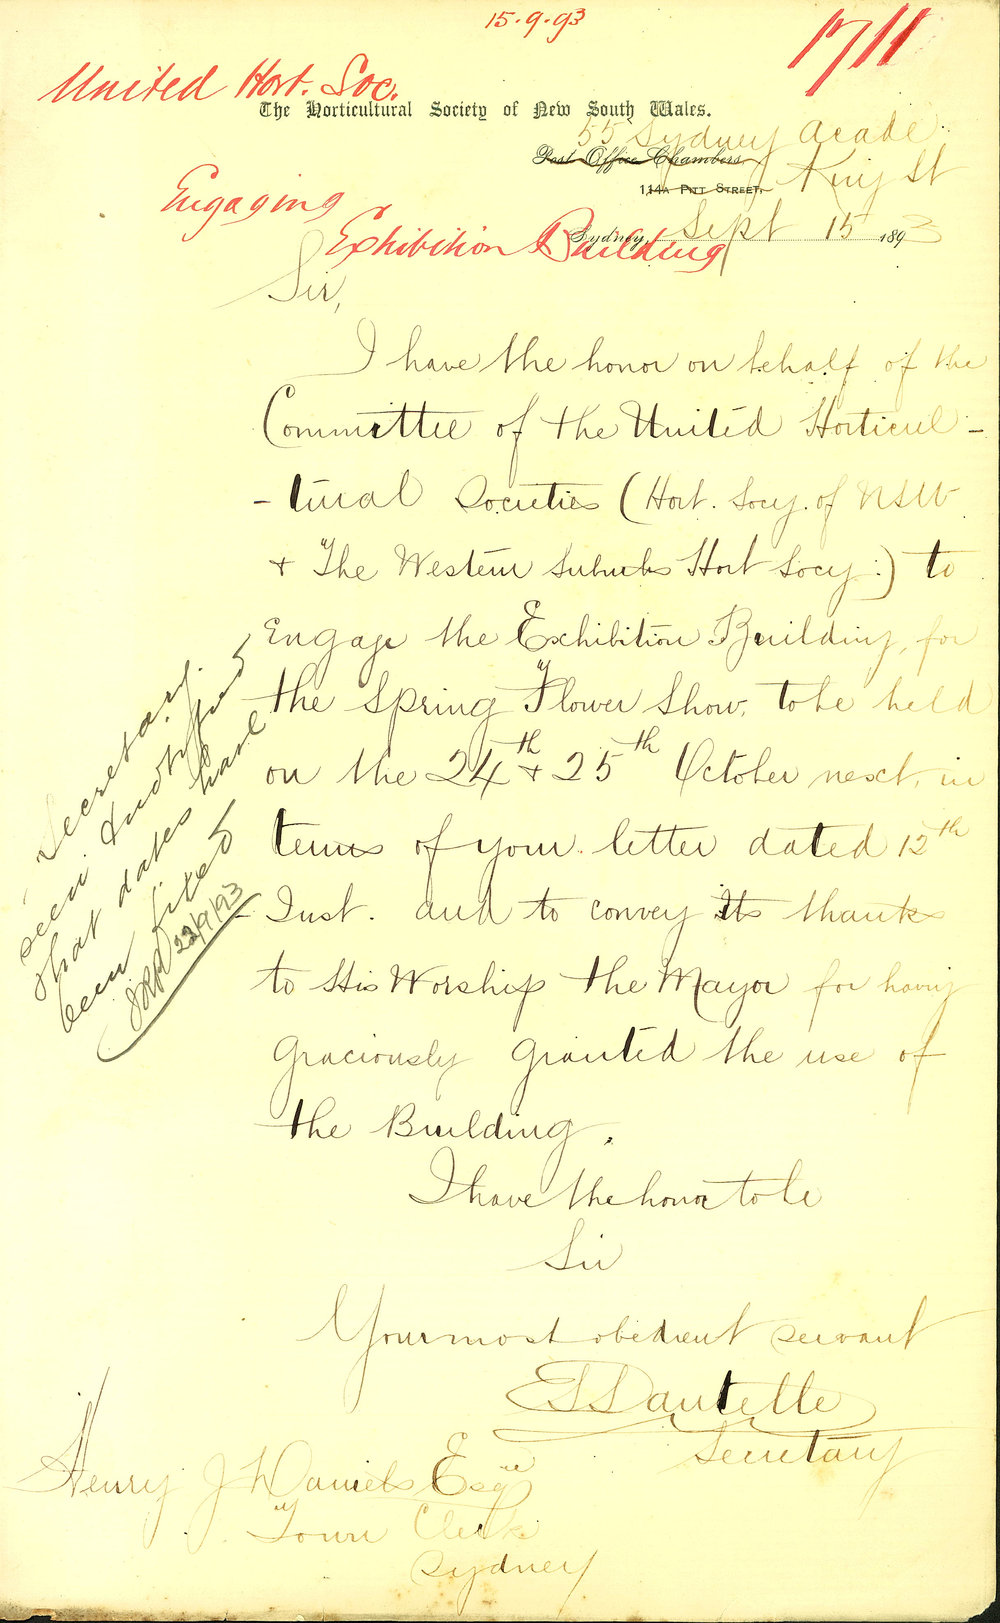 15.9.93
1711
United Hort. Soc.
The Horticultural Society of New South Wales.
55 Sydney Acade
Post Office Chambers,
King St
114A Pitt Street,
Engaging
Sydney, Sept 15 1893
Exhibition Building
Sir,
I have the honor on behalf of the
Committee of the United Horticul-
-tural Societies (Hort. Socy. of NSW
& The Western Suburbs Hort Socy.) to
engage the Exhibition Building, for
the Spring Flower Show, to be held
on the 24th & 25th October next, in
terms of your letter dated 12th
Inst. and to convey its thanks
to His Worship the Mayor for having
graciously granted the use of
the Building.
I have the honor to be
Sir
Your most obedient servant
Secretary
Henry J Daniels Esqre
Town Clerk
Sydney
Secretary.
seen & notified
that dates have
been fixed
22/9/93